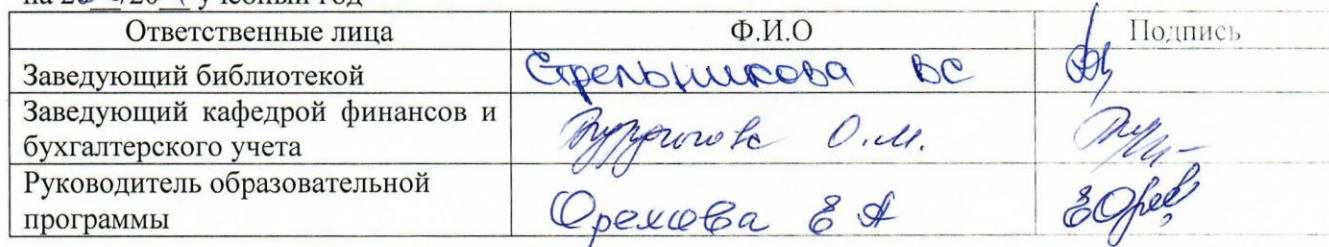 Ответственные лица Ф.И.О Подпись
Заведующий библиотекой Стрельникова ВС
Заведующий кафедрой финансов и
бухгалтерского учета О.М.
Руководитель образовательной
программы Орехова Е А